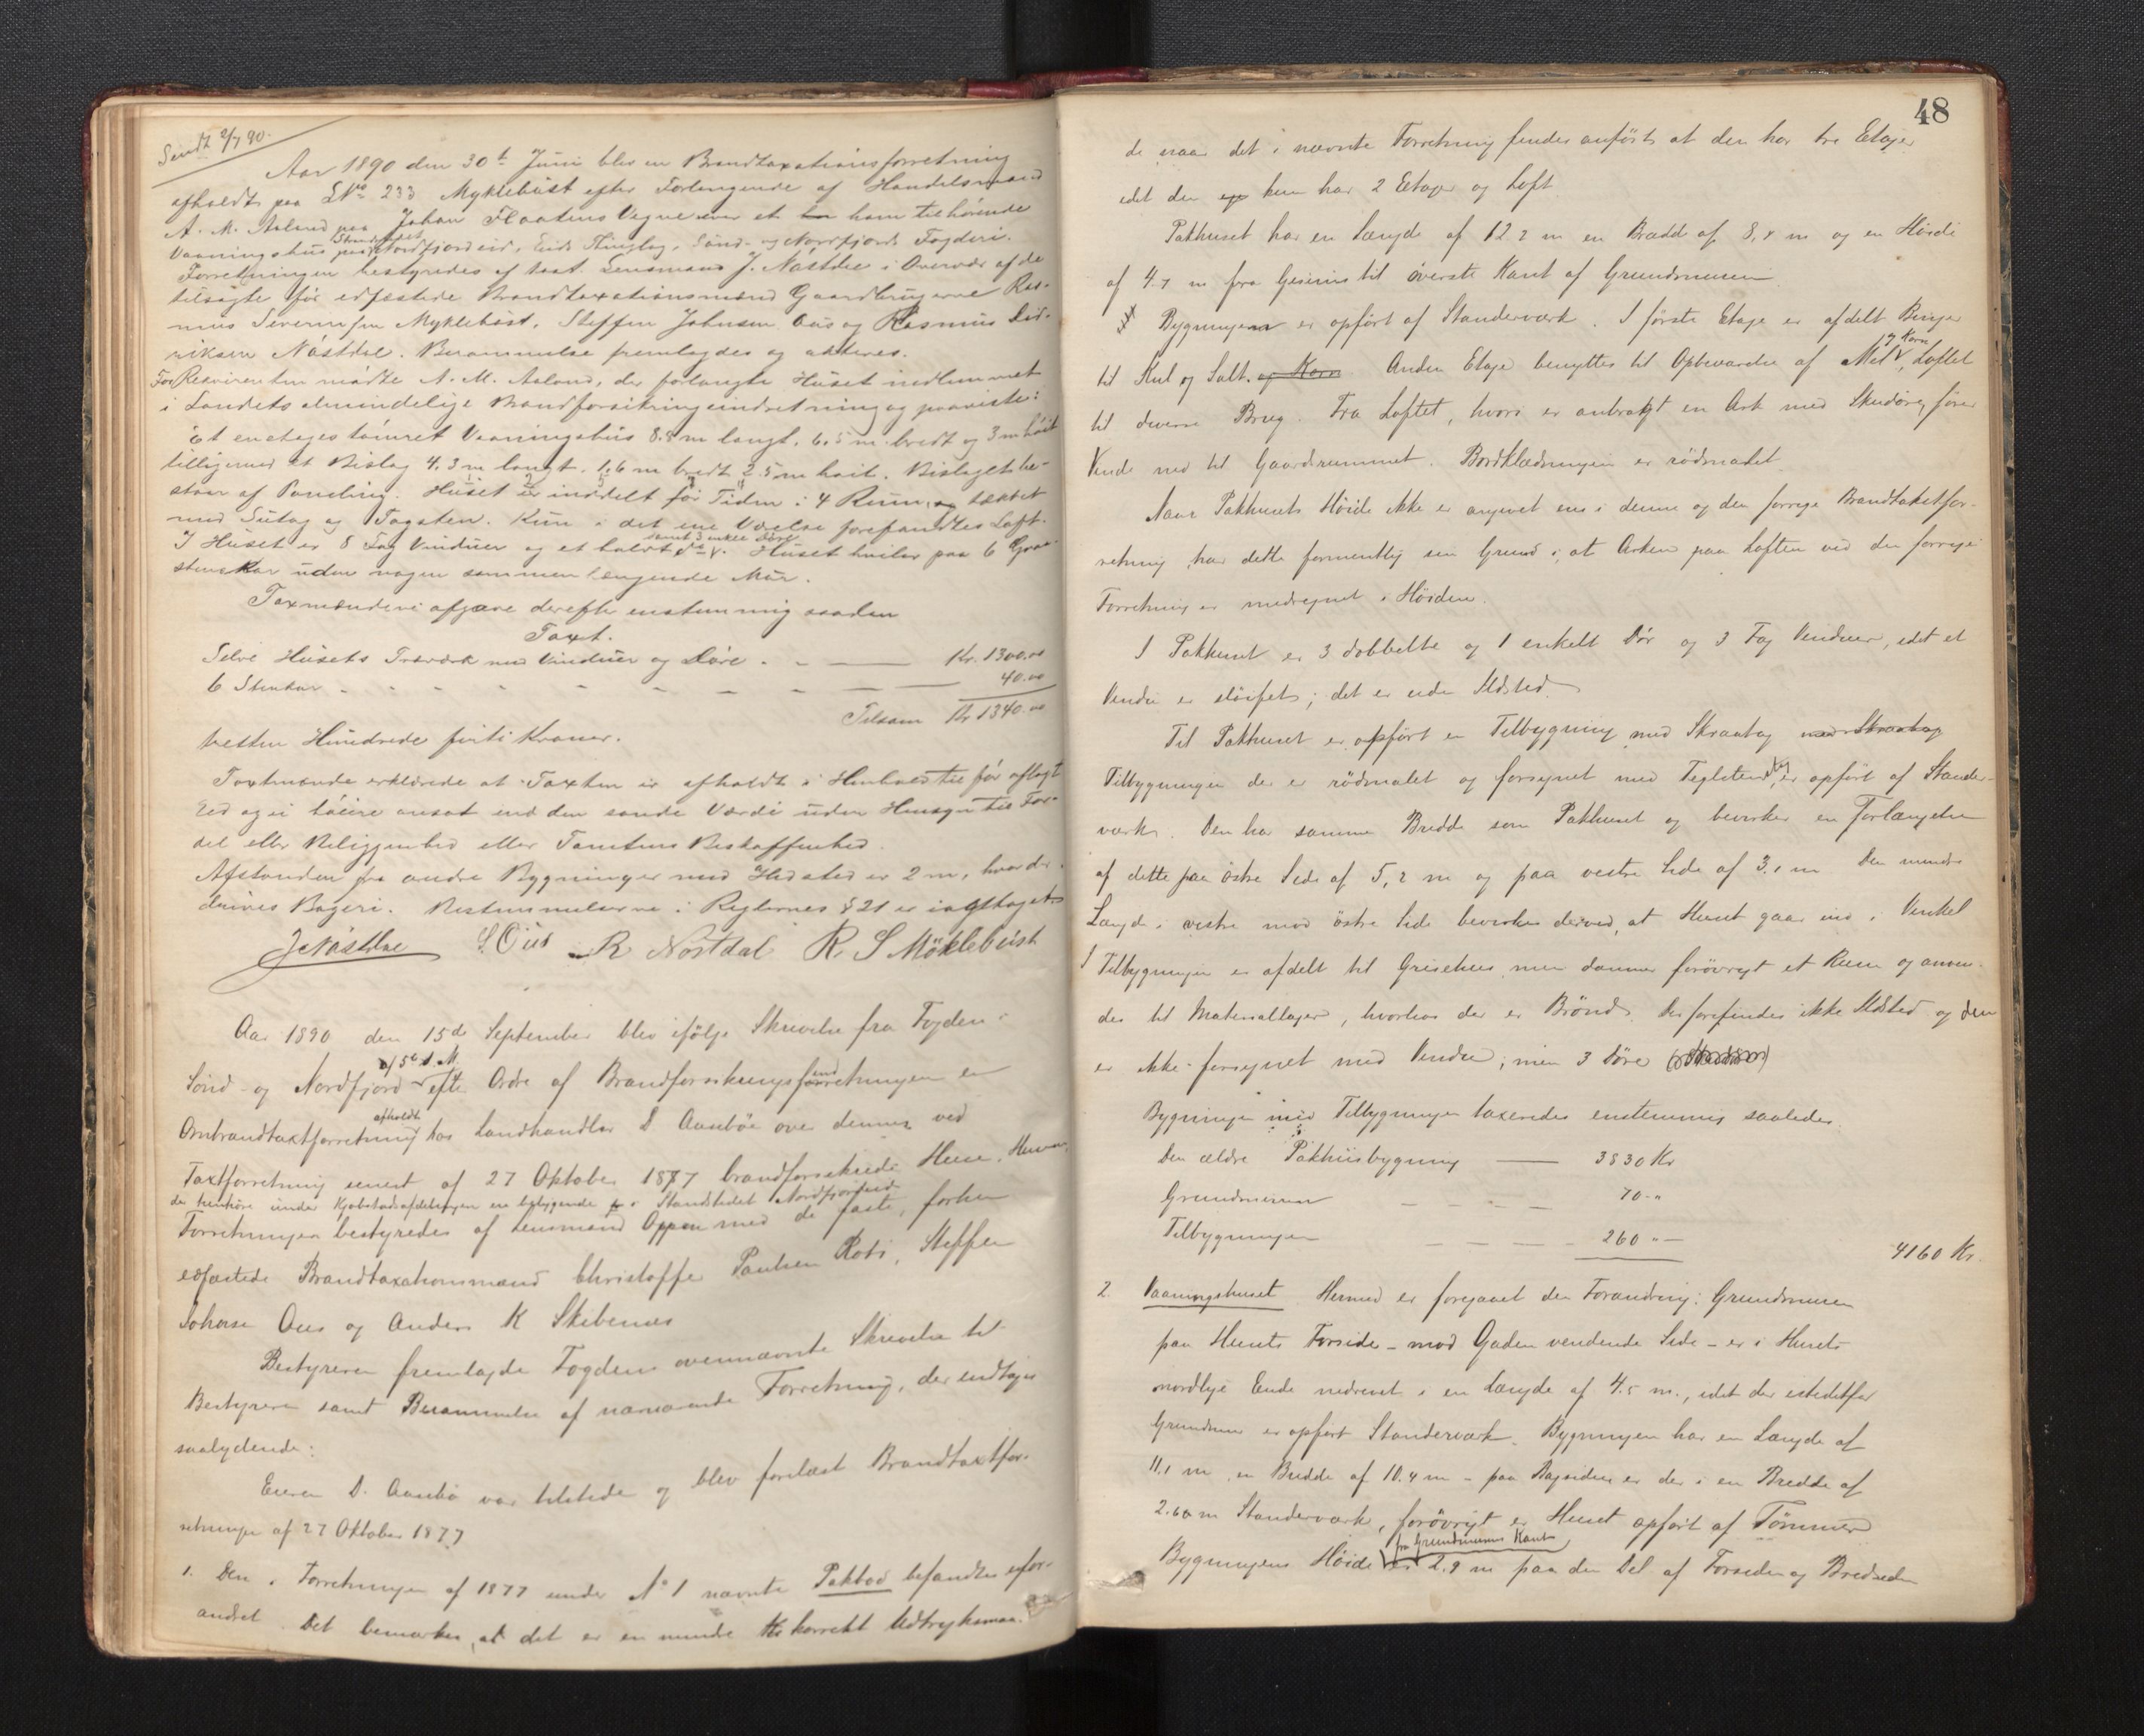 Sendt 2/7 90.
Aar 1890 den 30te Juni blev en Brandtaxationsforretning
afholdt paa LNo 233 Myklebust efter Forlangende af Handelsmand
A. M. Aaland paa Johan Flaatens Vegne over et ham tilhørende
Vaaningshus paa Strandstedet Nordfjordeid, Eids Thinglag, Sønd- og Nordfjords Fogderi.
Forretningen bestyredes af kast. Lensmand J. Nøstdal i Overvær af de
tilsagte før edfæstede Brandtaxationsmænd Gaardbrugerne Ras-
mus Severinsen Myklebust, Steffen Johnsen Øus og Rasmus Did-
riksen Nøstdal. Berammelse fremlagdes og akteres.
For Rekvirenten mødte A. M. Aaland, der forlangte Huset indlemmet
i Landets almindelige Brandforsikringsindretning og paaviste:
Et enetages tømret Vaaningshus 8.8 m langt, 6.5 m bredt og 3 m høit
tilligemed et Bislag 4.3 m langt, 1.6 m bredt, 2.5 m høit. Bislaget be-
staar af Paneling. Huset er inddelt for Tiden i 4 Rum, og tækket
med Sutag og Tagsten. Kun i det ene Værelse forefandtes Loft.
I Huset er 8 Fag Vinduer og et halvt do samt 3 enkle Døre. Huset hviler paa 6 Graa-
stenskar uden nogen sammenhængende Mur.
Taxmændene afgave derefter enstemmig saadan
Taxt.
Selve Husets Træværk med Vinduer og Døre - - — Kr. 1300.00
6 Stenkar - - - - - - - — 40.00
Tilsam Kr 1340.00
tretten Hundrede firti Kroner.
Taxtmændene erklærede at Taxten er afholdt i Henhold til før aflagt
Ed og ei høiere ansat end den sande Værdi uden Hensyn til For-
del eller Beliggenhed eller Tomtens Beskaffenhed.
Afstanden fra andre Bygninger med Ildsted er 2 m, hvor der
drives Bageri. Bestemmelserne i Reglernes § 21 er iagttaget.
J. Nøstdal S. Øus R Nøstdal R. S Möklebust
Aar 1890 den 15de September blev ifølge Skrivelse fra Fogden i
Sønd- og Nordfjord af 5te d. M. efter Ordre af Brandforsikringsindretningen en
Ombrandtaxtforretning afholdt hos Landhandler D. Aanebø over dennes ved
Taxtforretning senest af 27 Oktober 1877 brandforsikrede Huse, Husene,
der henhøre under Kjøbstadsafdelingen ere beliggende i Strandstedet Nordfjordeid
Forretningen bestyredes af Lensmand Oppen med de faste, forhen
edfæstede Brandtaxationsmænd Christoffer Paulsen Roti, Steffen
Johnsen Øus og Anders K Skibenes
Bestyreren fremlagde Fogdens ovennævnte Skrivelse til
Bestyreren samt Berammelse af nærværende Forretning, der indtages
saalydende:
Eieren D. Aanebø var tilstede og blev forelæst Brandtaxtfor-
retningen af 27 Oktober 1877
1. Den i Forretningen af 1877 under No 1 nævnte Pakbod befandtes ufor-
andret. Det bemærkes, at det er en mindre korrekt Udtryksmaa-
48
de naar det i nævnte Forretning findes anført at den har tre Etager
idet den kun har 2 Etager og Loft.
Pakhuset har en Længde af 12.2 m en Bredde af 8,8 m og en Høide
af 4.7 m fra Gesims til øverste Kant af Grundmuren
Bygningen er opført af Standerværk. I første Etage er afdelt Binger
til Kul og Salt. og Korn Anden Etage benyttes til Opbevarelse af Mel og Korn, Loftet
til diverse Brug. Fra Loftet, hvori er anbragt en Ark med Skuddør, fører
Vinde ned til Gaardsrummet. Bordklædningen er rødmalet.
Naar Pakhusets Høide ikke er angivet ens i denne og den forrige Brandtakstfor-
retning, har dette formentlig sin Grund i, at Arken paa Loftet ved den forrige
Forretning er medregnet i Høiden.
I Pakhuset er 3 dobbelte og 1 enkelt Dør og 3 Fag Vinduer, idet et
Vindu er sløifet; det er uden Ildsted.
Til Pakhuset er opført en Tilbygning med Skraatag med Skraatag
Tilbygningen der er rødmalet og forsynet med Teglstenstag, er opført af Stander-
værk. Den har samme Bredde som Pakhuset og bevirker en Forlængelse
af dette paa østre Side af 5,2 m og paa vestre Side af 3.1 m Den mindre
Længde i vestre mod østre Side bevirkes derved, at Huset gaar ind i Vinkel
I Tilbygningen er afdelt til Grisehus men danner forøvrigt et Rum og anven-
des til Materiallager, hvorhos der er Brønd. Der forefindes ikke Ildsted og den
er ikke forsynet med Vindu; men 3 Døre
Bygningen med Tilbygningen taxeredes enstemmig saaledes:
Den ældre Pakhusbygning — 3830 Kr
Grundmuren - - - - 70 - "
Tilbygningen - - - - 260 " —
4160 Kr.
2. Vaaningshuset Hermed er foregaaet den Forandring: Grundmuren
paa Husets Forside - mod Gaden vendende Side - er i Husets
nordlige Ende nedrevet i en Længde af 4.5 m., idet der istedetfor
Grundmur er opført Standerværk. Bygningen har en Længde af
11.1 m, en Bredde af 10.4 m - paa Bagsiden er der i en Bredde af
2.60 m Standerværk, forøvrigt er Huset opført af Tømmer
Bygningens Høide fra Grundmurens Kant er 2.9 m paa den Del af Forsiden og Bredsiden